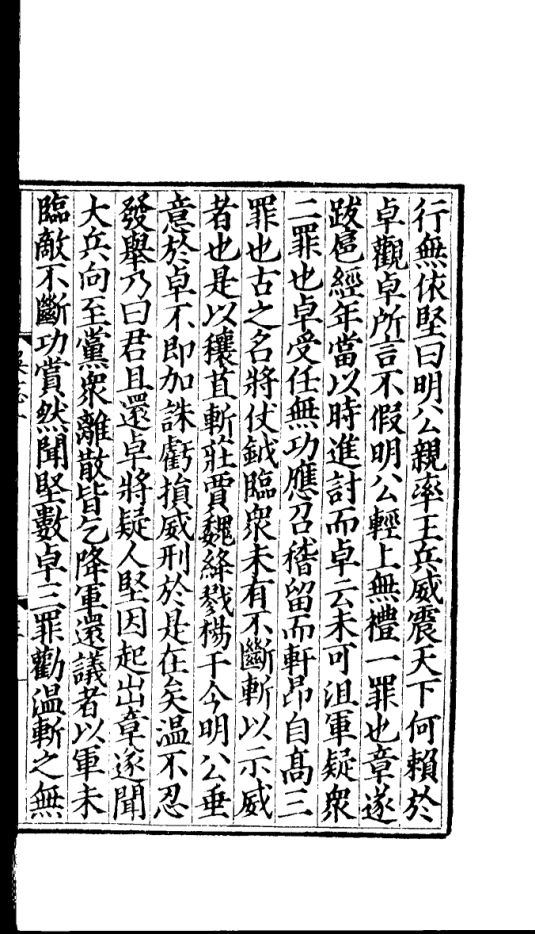 行無依堅曰明公親率王兵威震天下何賴於
卓觀卓所言不假明公輕上無禮一罪也章遂
跋扈經年當以時進討而卓云未可沮軍疑衆
二罪也卓受任無功應召稽留而軒昂自高三
罪也古之名將仗鉞臨衆未有不斷斬以示威
者也是以穰苴斬莊賈魏絳戮楊干今明公垂
意於卓不即加誅虧損威刑於是在矣温不忍
發舉乃曰君且還卓將疑人堅因起出章遂聞
大兵向至黨衆離散皆乞降軍還議者以軍未
臨敵不斷功賞然聞堅數卓三罪勸温斬之無